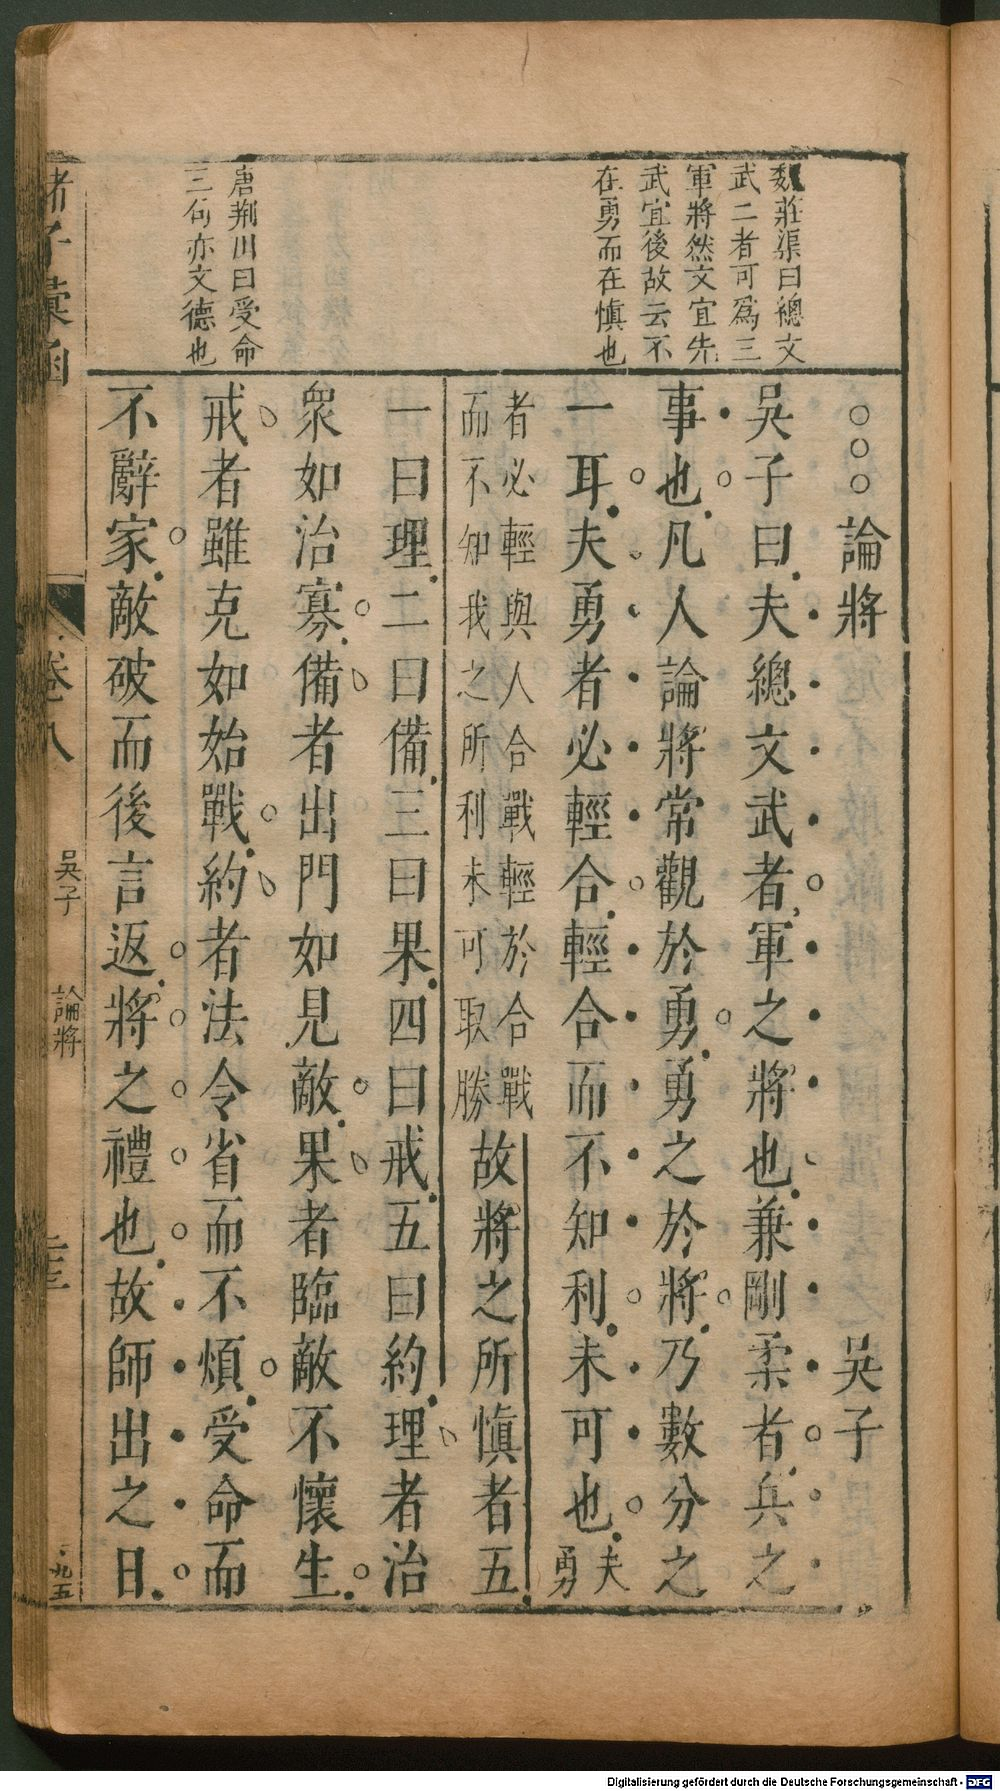 魏莊渠曰總文
武二者可爲三
軍將然文宜先
武宜後故云不
在勇而在愼也
唐荆川曰受命
三句亦文德也
○○○論將 吳子
吳子曰夫總文武者軍之將也兼剛柔者兵之
事也凡人論將常觀於勇勇之於將乃數分之
一耳夫勇者必輕合輕合而不知利未可也夫勇
者必輕與人合戰輕於合戰
而不知我之所利未可取勝
故將之所愼者五
一曰理二曰備三曰果四曰戒五曰約理者治
衆如治寡備者出門如見敵果者臨敵不懷生
戒者雖克如始戰約者法令省而不煩受命而
不辭家敵破而後言返將之禮也故師出之日
諸子彙函
卷八
吳子
論將
九五
Digitalisierung gefördert durch die Deutsche Forschungsgemeinschaft - DFG